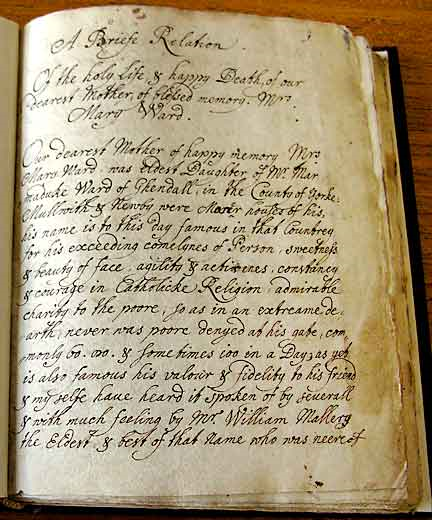 A Briefe Relation
Of the holy life & happy Death, of our
dearest Mother, of blessed memory, Mrs
Mary Ward.
Our dearest Mother of happy memory Mrs
Mary Ward, was eldest Daughter of Mr Mar
maduke Ward of Ghendall, in the County of Yorke:
Mullwith & Newby were Manor houses of his,
his name is to this day famous in that Countrey
for his exceeding comelynes of Person, sweetness
& beauty of face, agility & activenes, constancy
& courage in Catholicke Religion, admirable
charity to the poore, so as in an extreame de-
arth, never was poore denyed at his gate, com-
monly 60. 80. & sometimes 100 in a Day; as yet
is also famous his valour & fidelity to his friend
& my selfe have heard it spoken of by severall
& with much feeling by Mr. William Mallery
the Eldest & best of that name who was neere of